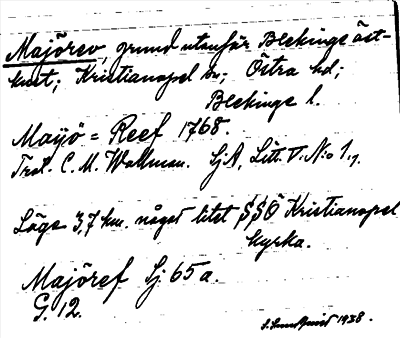 Majörev, grund utanför Blekinge öst-
kust; Kristianopel sn; Östra hd;
Blekinge l.
Mayö = Reef 1768.
Trol. C. M. Wallman. Sj.A, Litt. V. N:o 1.
Läge 3,7 km. något litet SSÖ Kristianopel
kyrka.
Majöref Sj. 65 a.
G. 12.
1938.